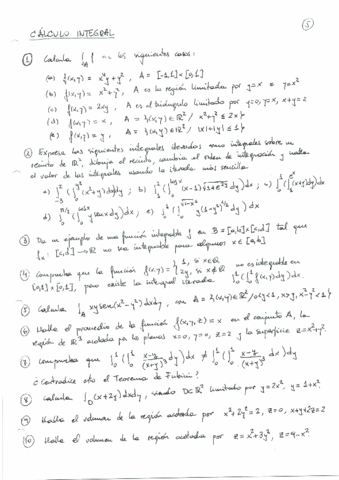 CÁLCULO INTEGRAL
5
① Calcula ∫_A f en los siguientes casos:
(a) f(x,y) = x⁴y + y², A = [-1,1]×[0,1]
(b) f(x,y) = x² + y², A es la región limitada por y = x e y = x²
(c) f(x,y) = 2xy, A es el triángulo limitado por y=0, y=x, x+y=2
(d) f(x,y) = x, A = {(x,y) ∈ ℝ² / x²+y² ≤ 2x}
(e) f(x,y) = y, A = {(x,y) ∈ ℝ² / |x|+|y| ≤ 1}
② Expresa las siguientes integrales iteradas como integrales sobre un
recinto de ℝ², dibuja el recinto, cambia el orden de integración y halla
el valor de las integrales usando la iterada más sencilla
③ Da un ejemplo de una función integrable f en B = [a,b]×[c,d] tal que
f_x : [c,d] → ℝ no sea integrable para algunos x ∈ [a,b]
④ Comprueba que la función f(x,y) = { 1, si x∈ℚ; 2y, si x∉ℚ no es integrable en
[0,1]×[0,1], pero existe la integral iterada ∫₀¹(∫₀¹ f(x,y)dy)dx
⑤ Calcula ∫_A xy sen(x²-y²) dxdy, con A =
⑥ Halla el promedio de la función f(x,y,z) = x en el conjunto A, la
región de ℝ³ acotada por los planos x=0, y=0, z=2 y la superficie z=x²+y².
⑦ Comprueba que ∫₀¹(∫₀¹ (x-y)/(x+y)³ dy)dx ≠ ∫₀¹(∫₀¹ (x-y)/(x+y)³ dx)dy
¿Contradice esto el Teorema de Fubini?
⑧ Calcula ∫_D (x+2y)dxdy, siendo D⊂ℝ² limitado por y=2x², y=1+x²
⑨ Halla el volumen de la región acotada por x²+2y²=2, z=0, x+y+2z=2
⑩ Halla el volumen de la región acotada por z=x²+3y², z=4-x²